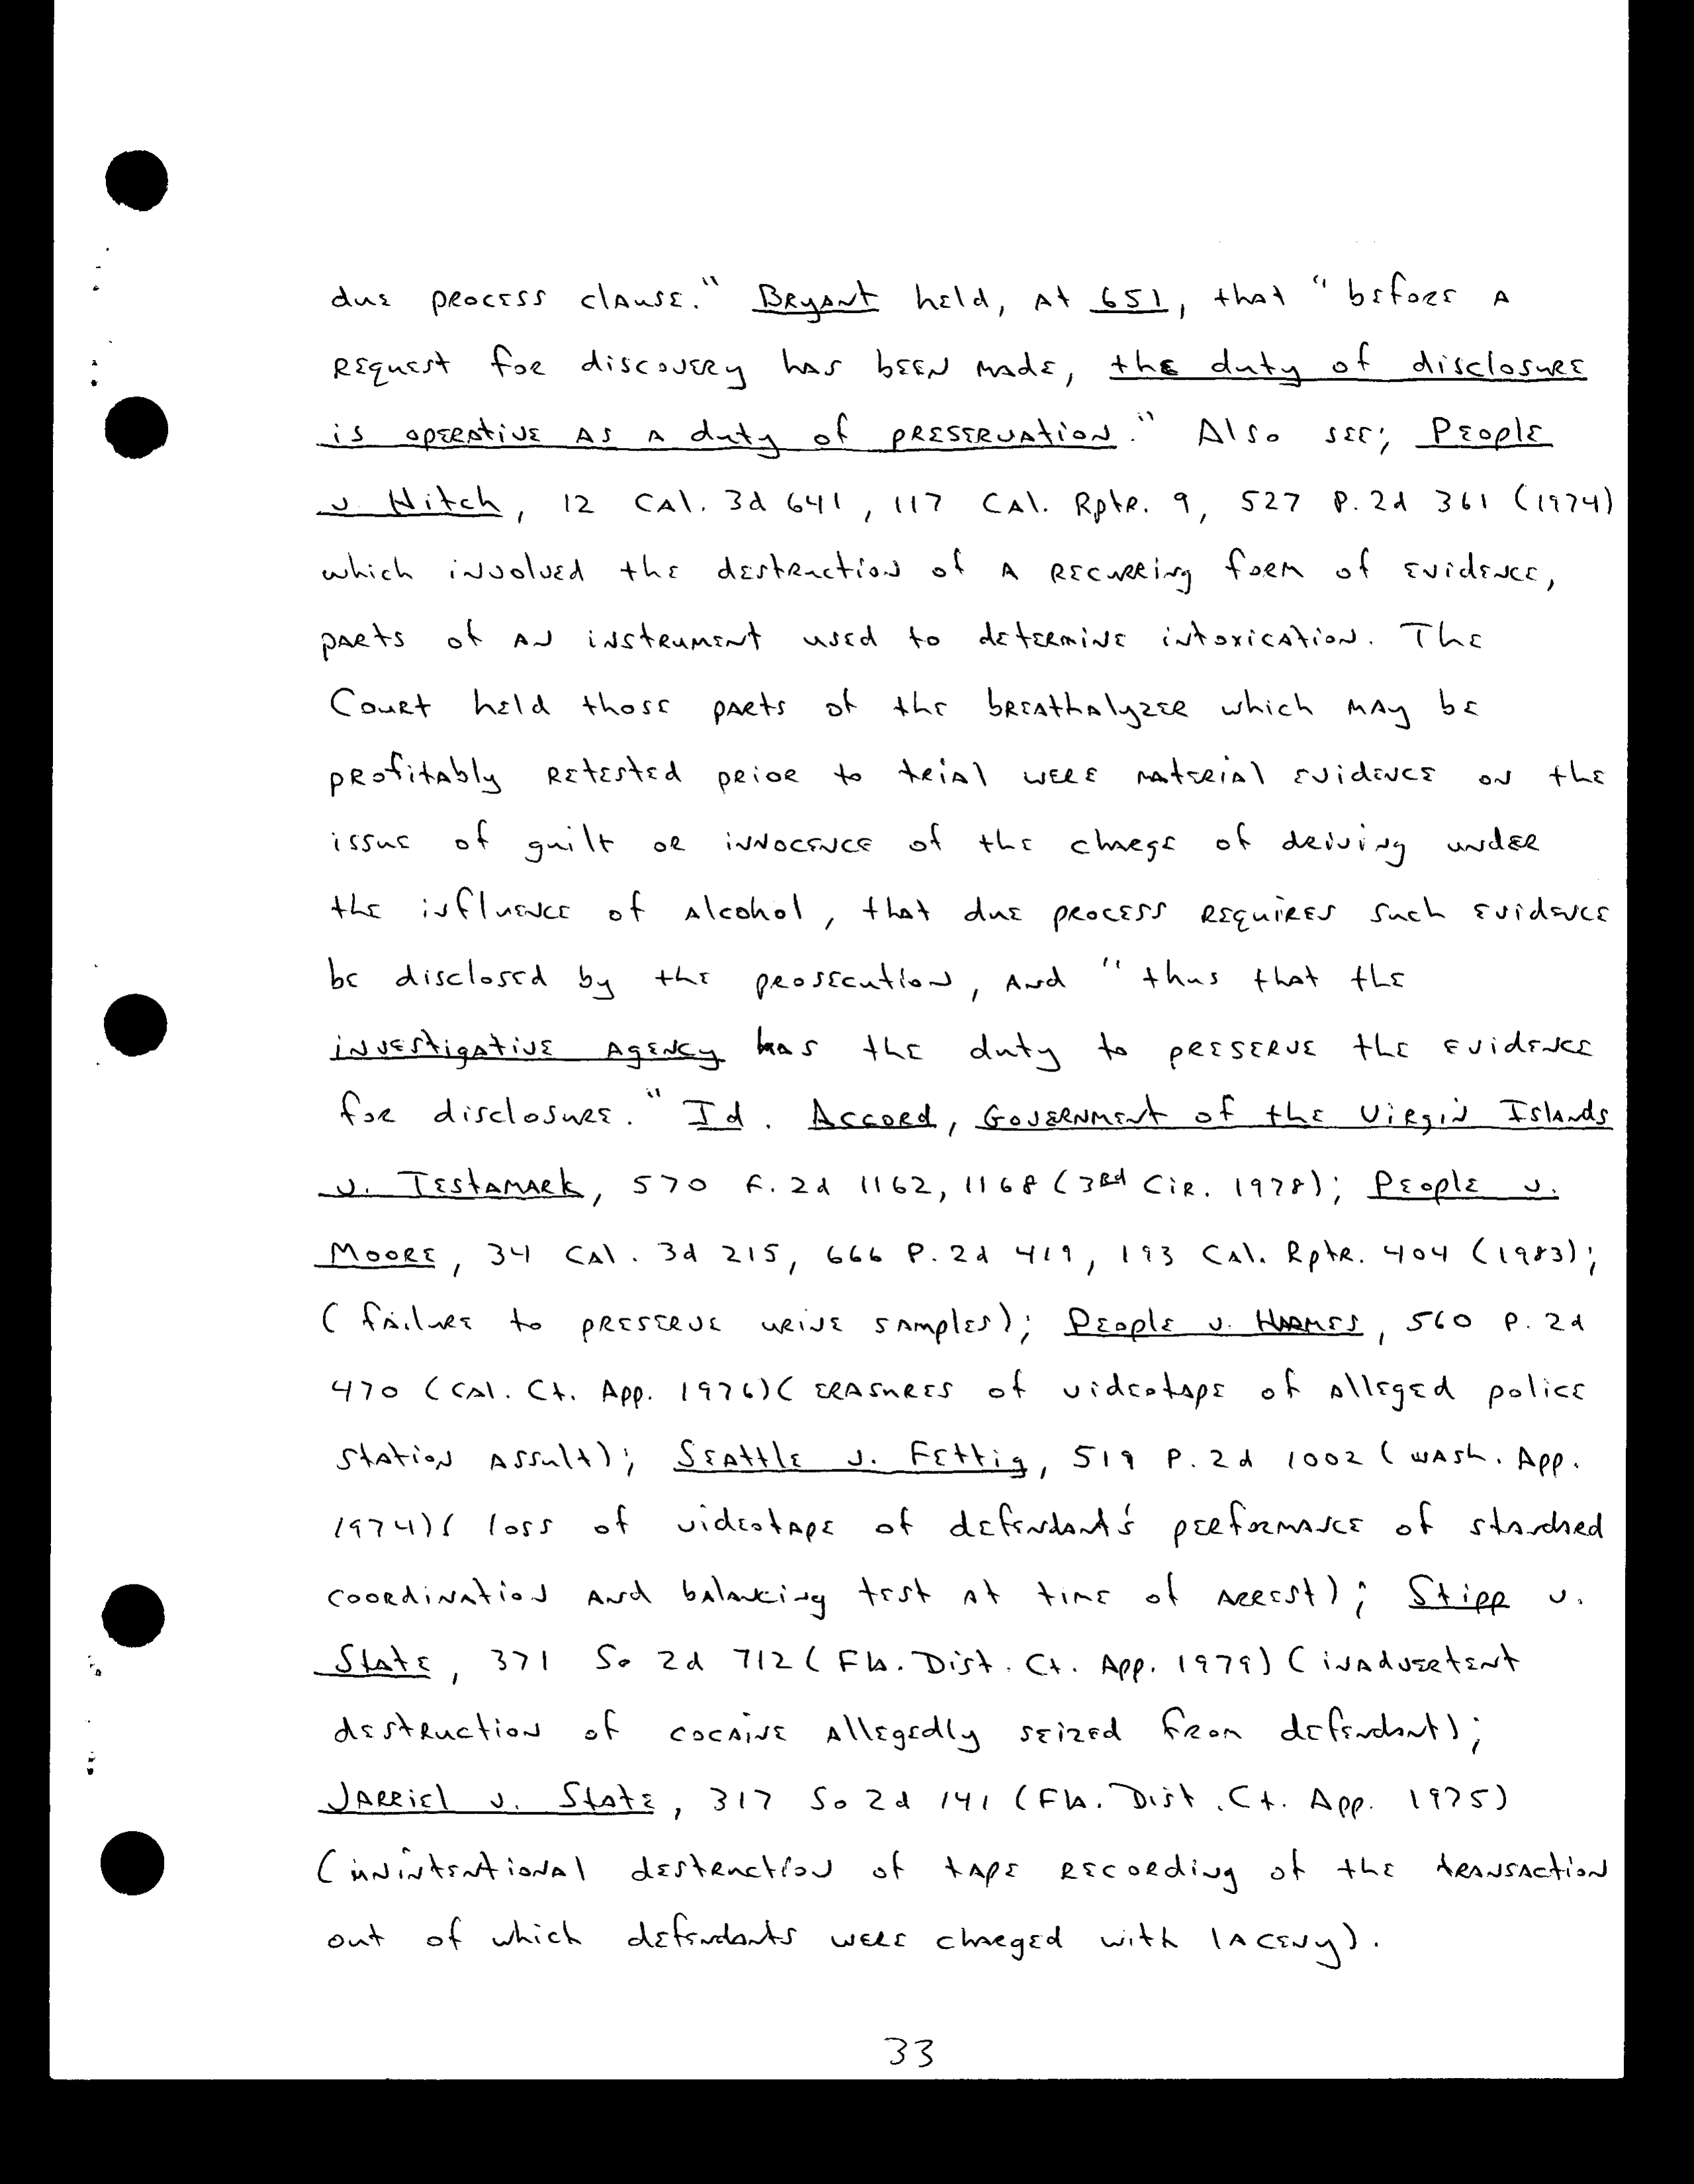 due process clause." Bryant held, at 651, that "before a
request for discovery has been made, the duty of disclosure
is operative as a duty of preservation." Also see; People
v. Hitch, 12 Cal. 3d 641, 117 Cal. Rptr. 9, 527 P. 2d 361 (1974)
which involved the destruction of a recurring form of evidence,
parts of an instrument used to determine intoxication. The
Court held those parts of the breathalyzer which may be
profitably retested prior to trial were material evidence on the
issue of guilt or innocence of the charge of driving under
the influence of alcohol, that due process requires such evidence
be disclosed by the prosecution, and "thus that the
investigative agency has the duty to preserve the evidence
for disclosure." Id. Accord, Government of the Virgin Islands
v. Testamark, 570 F. 2d 1162, 1168 (3rd Cir. 1978); People v.
Moore, 34 Cal. 3d 215, 666 P. 2d 419, 193 Cal. Rptr. 404 (1983);
(failure to preserve urine samples); People v. Harmes, 560 P. 2d
470 (Cal. Ct. App. 1976)(erasures of videotape of alleged police
station assult); Seattle v. Fettig, 519 P. 2d 1002 (Wash. App.
1974)(loss of videotape of defendant's performance of standard
coordination and balancing test at time of arrest); Stipp v.
State, 371 So 2d 712 (Fla. Dist. Ct. App. 1979) (inadvertent
destruction of cocaine allegedly seized from defendant);
Jarriel v. State, 317 So 2d 141 (Fla. Dist. Ct. App. 1975)
(unintentional destruction of tape recording of the transaction
out of which defendants were charged with laceny).
33